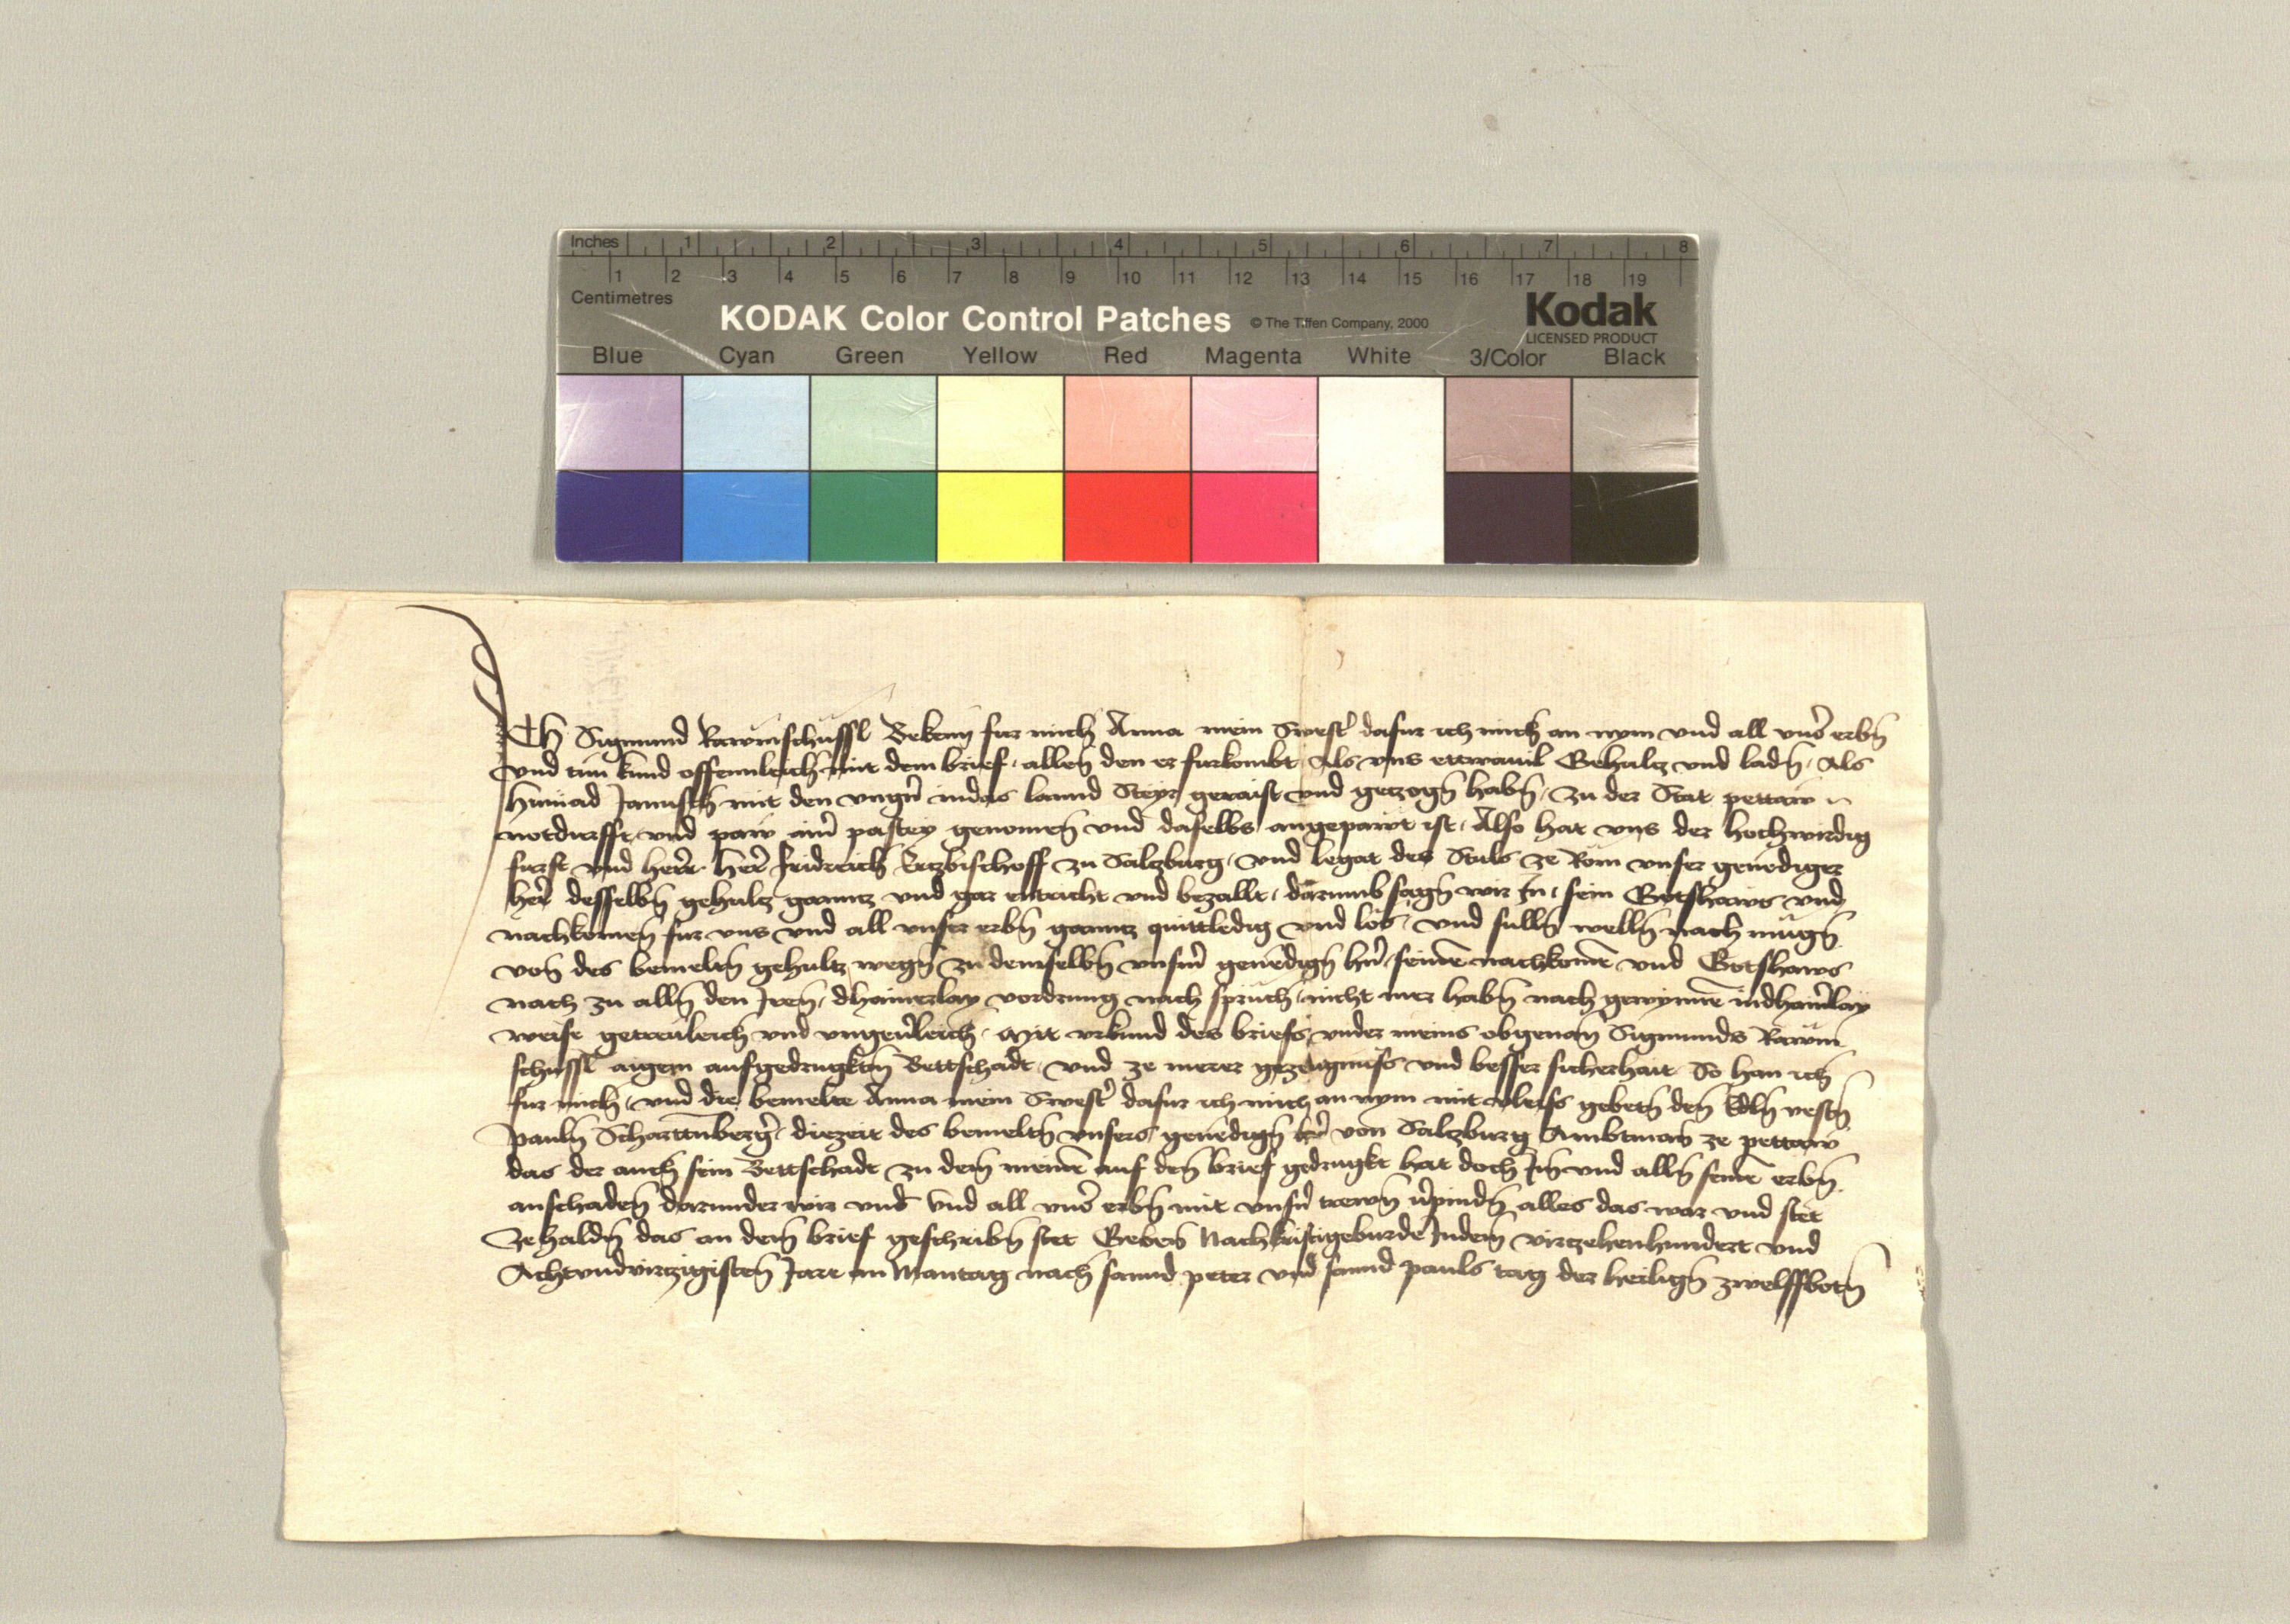 Inches 1 2 3 4 5 6 7 8
1 2 3 4 5 6 7 8 9 10 11 12 13 14 15 16 17 18 19
Centimetres
KODAK Color Control Patches © The Tiffen Company, 2000 Kodak
LICENSED PRODUCT
Blue Cyan Green Yellow Red Magenta White 3/Color Black
Ich Sigmund Rawmschüssl Bekenn fur mich Anna mein Swest̓ dafur ich mich an nym vnd all vns̓ erbn̄
vnd tun kund offennleich mit dem brief allen den er furkombt Als vns ettwauil Gehultz vnd ladn̄ Als
Hunad Jannisch mit den vngn̓ indas lannd Steyr geraist vnd getzogn̄ habn̄ zu der Stat pettaw
notdurfft vnd paw ain̓ pastey genomen̄ vnd daselbs angepawt ist Also hat vns der hochwirdig
furst vnd herr̓ her̓ fridreich Ertzbischoff zu Salzburg vnd legat des Stuls ze Rom vnser genediger
her̓ desselbn̄ gehultz ganntz vnd gar entricht vnd bezallt darumb sagn̄ wir In sein Gotshaws vnd
nachkomen̄ fur vns vnd all vnser erbn̄ ganntz quittledig vnd los vnd sulln̄ welln̄ nach mugn̄
von̄ des bemeltn̄ gehultz wegn̄ zu demselbn̄ vnsm̓ genedign̄ hn̓ seinen̄ nachkomen̄ vnd Gotshaws
nach zu alln̄ den Iren̄ dhainerlay vordrung nach spruch nicht mer habn̄ nach gewynnen̄ indhain̓lay
weise getreuleich vnd vngeu̓leich Mit vrkund des briefs vnder meins obgenan̄ Sigmunds Rawm
schussl aigem aufgedrugktn̄ Bettschadt vnd ze merer gezeugnuss vnd besser sicherhait So han ich
fur mich vnd die bemelte Anna mein Swest̓ dafur ich mich an nym mit vleiss gebetn̄ den̄ Edln̄ vestn̄
pauln̄ Scharttnberg̓ diezeit des bemeltn̄ vnsers genedign̄ hr̓n von Salzburg Ambtman̄ ze pettaw
das der auch sein Bettschadt zu dem̄ meinen̄ auf den̄ brief gedrugkt hat doch Im̄ vnd alln̄ seinen̄ erbn̄
anschaden̄ darunder wir vns vnd all vns̓ erbn̄ mit vnsn̓ trewn̄ v̓pindn̄ alles das war vnd stet
Zehaldn̄ das an dem̄ brief geschribn̄ stet Geben̄ Nach kristigeburde Indem̄ virtzehenhundert vnd
Achtvndvirtzigisten̄ Jare an Mantag nach sannd peter vnd sannd pauls tag der heilign̄ zwelffbotn̄